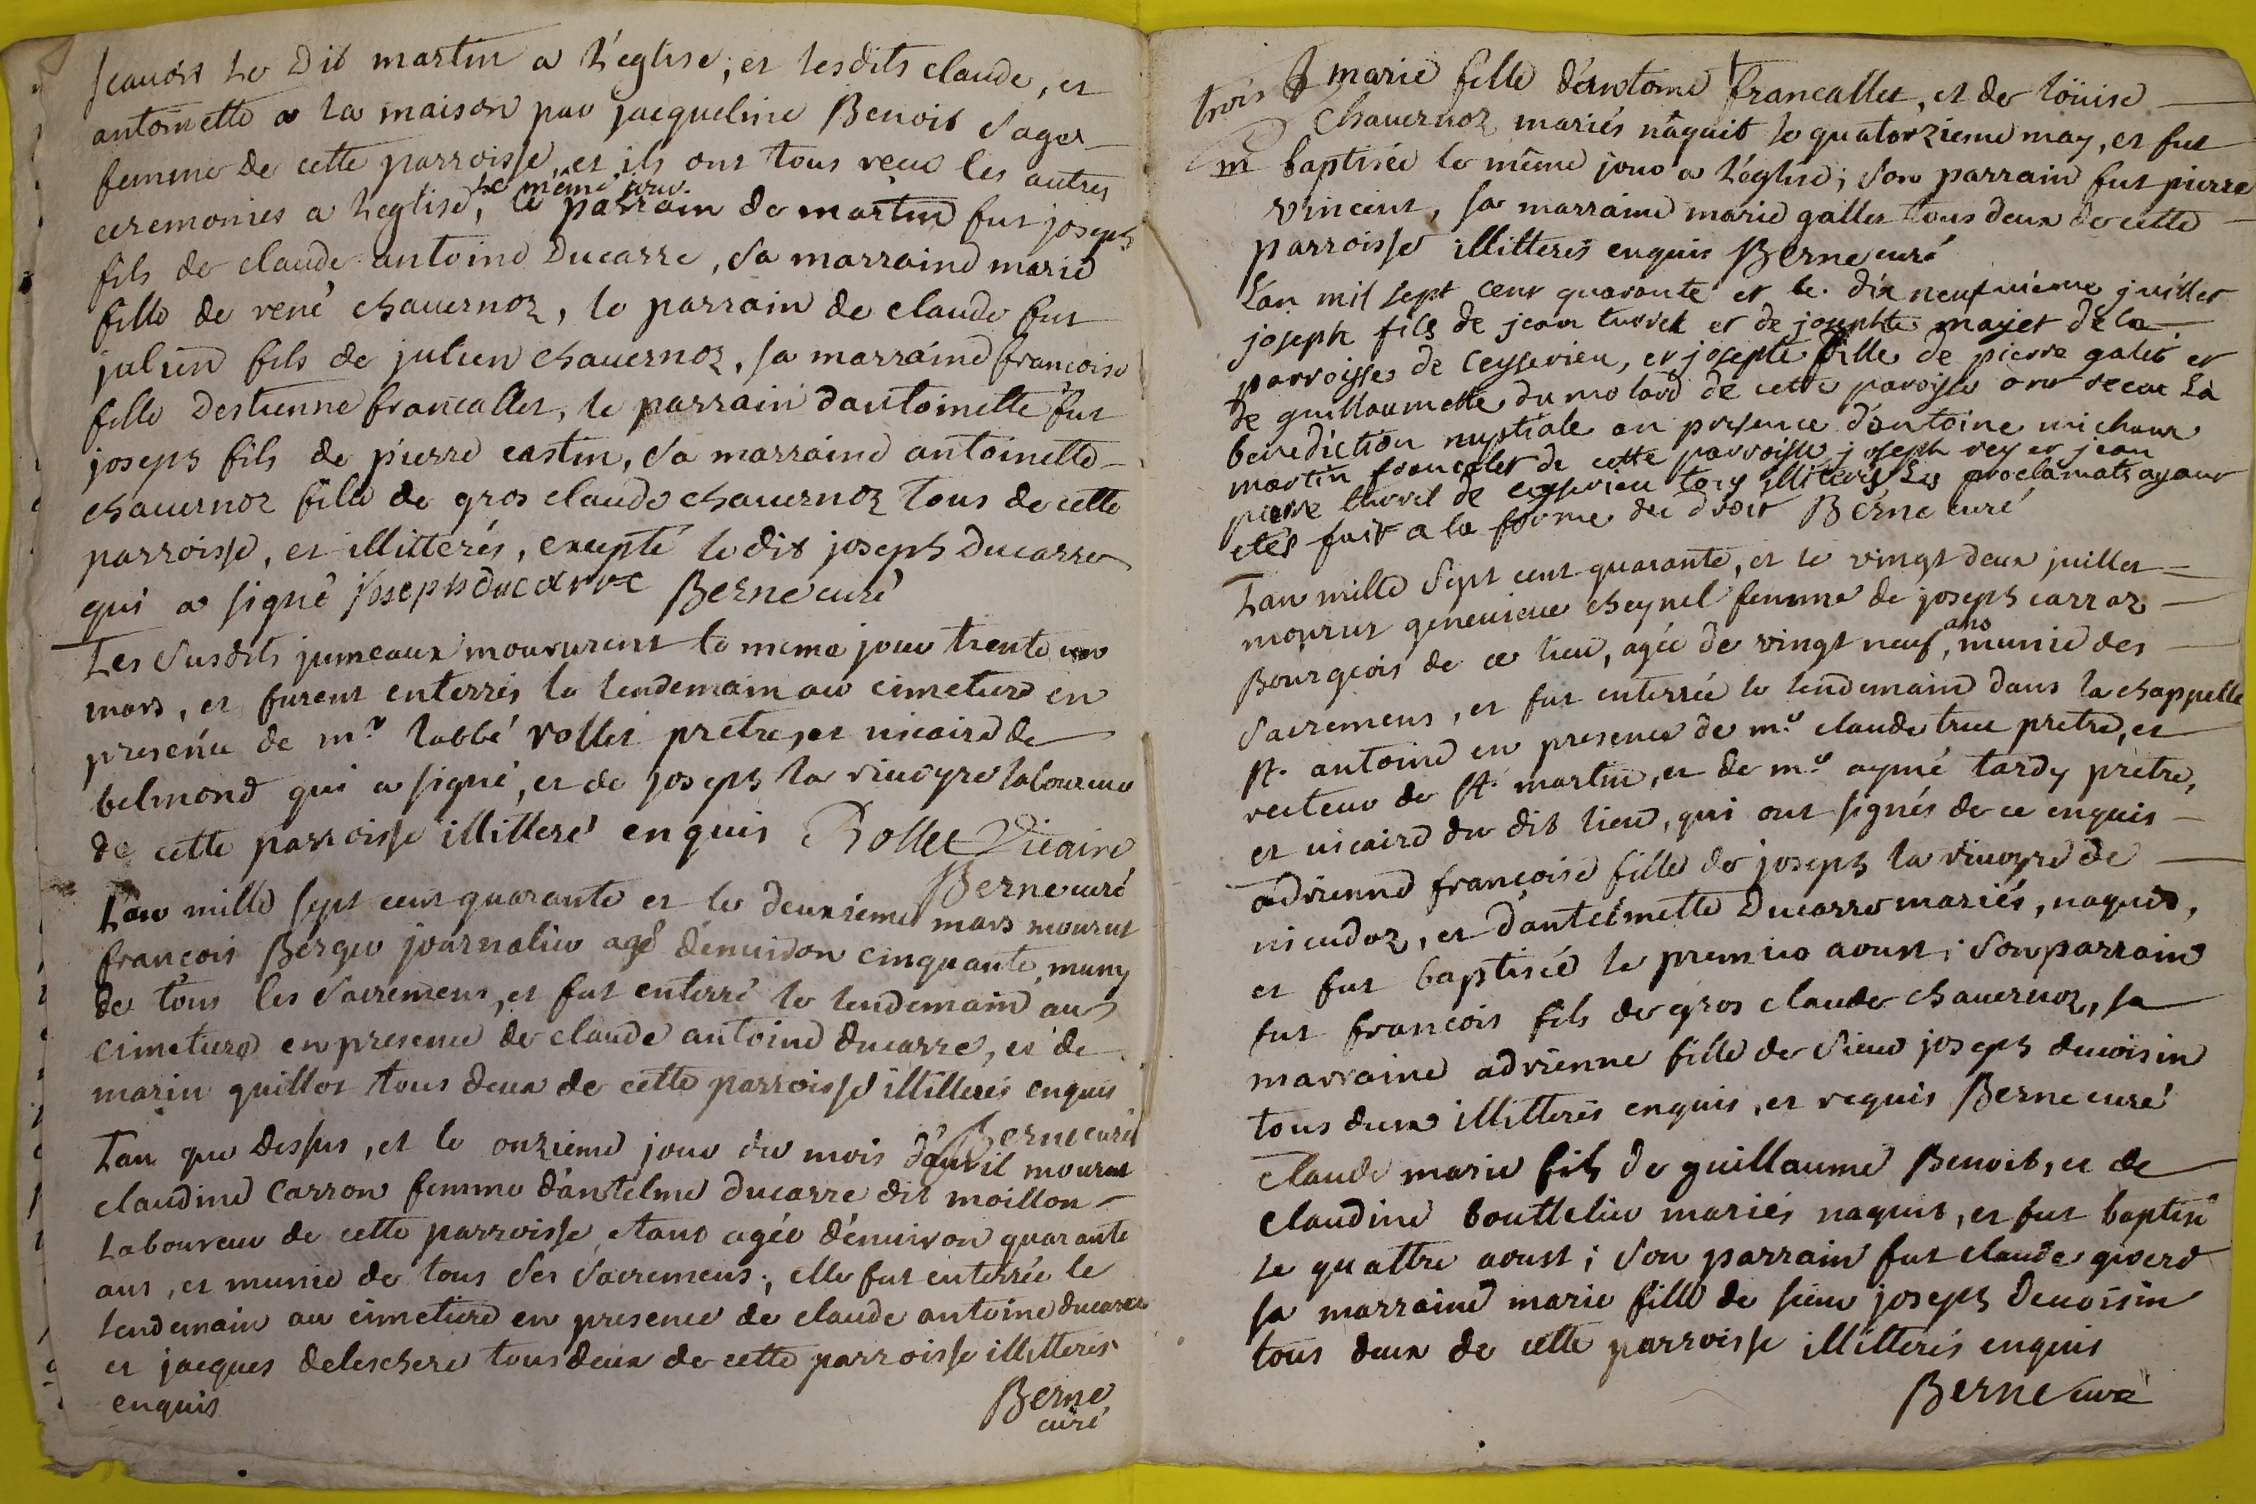 scauoir Le Dit martin a L'eglise, et lesdits claude, et
antoinette a la maison par jacqueline Benoit sage
femme de cette parroisse, et ils ont tous receu les autres
le même jour.
ceremonies a Leglise, le parrain de martin fut joseph
fils de claude antoine Ducarre, sa marraine marie
fille de rené chauernoz, le parrain de claude fut
julien fils de julien chauernoz, sa marraine francoise
fille destienne francallet, le parrain dantoinette fut
joseph fils de pierre castin, sa marraine antoinette
chauernoz fille de gros claude chauernoz tous de cette
parroisse, et illitterés, excepté le dit joseph ducarre
qui a signé joseph ducarre Berne curé
Les susdits jumeaux moururent le meme jour trente un
mars, et furent enterrés le lendemain au cimetiere en
presence de mr. labbé rollet pretre, et uicaire de
belmond qui a signé, et de joseph la viuoyre laboureur
de cette parroisse illitteré enquis Rollet Vicaire
Berne curé
L'an mille sept cent quarante et le deuxieme mars mourut
francois Berger journalier agé d'enuiron cinquante, muny
de tous les sacremens, et fut enterré le lendemain au
cimetiere en presence de claude antoine ducarre, et de
marin guillot tous deux de cette parroisse illitterés enquis
Berne curé
Lan que dessus, et le onzieme jour du mois d'auril mourut
claudine Carron femme d'antelme ducarre dit moillon
Laboureur de cette parroisse, etant agée d'enuiron quarante
ans, et munie de tous ses sacremens; elle fut enterrée le
lendemain au cimetiere en presence de claude antoine ducarre
et jacques deleschere tous deux de cette parroisse illitterés
enquis
Berne
curé
trois marie fille d'entoine francallet, et de loüise
chauernoz mariés nâquit le quatorzieme may, et fut
baptisée le même jour a L'église; son parrain fut pierre
vincent, sa marraine marie gallet tous deux de cette
parroisse illitterés enquis Berne curé
L'an mil sept cent quarante et le dix neufuieme juillet
joseph fils de jean turrel et de josephte majet de la
parroisse de Ceysserieu, et josepte fille de pierre galet et
de guillaumette dumolard de cette paroisse ont receu La
benediction nuptiale en presence d'antoine michaux
martin francalet de cette parroisse, joseph rey et jean
pierre turrel de ceysserieu tous illiterés Les proclamats ayant
etés fait a la forme du droit Berne curé
Lan mille sept cent quarante, et le vingt deux juillet
mourut geneuieue cheynel femme de joseph carraz
Bourgeois de ce lieu, agée de vingt neuf ans, munie des
sacremens, et fut enterrée le lendemain dans la chappelle
st. antoine en presence de mr. claude truc pretre, et
recteur de st. martin, et de mr. aymé tardy pretre,
et uicaire du dit lieu, qui ont signés de ce enquis
adrienne françoise fille de joseph la viuoyre de
uieudoz, et d'antoinette Ducarre mariés, naquit,
et fut baptisée le premier aoust; son parrain
fut francois fils de gros claude chauernoz, sa
marraine adrienne fille de sieur joseph deuoisin
tous deux illitterés enquis, et requis Berne curé
Claude marie fils de guillaume Benoit, et de
claudine bouttelier mariés naquit, et fut baptisé
le quattre aoust; son parrain fut claude
sa marraine marie fille de sieur joseph Deuoisin
tous deux de cette parroisse illitterés enquis
Berne curé